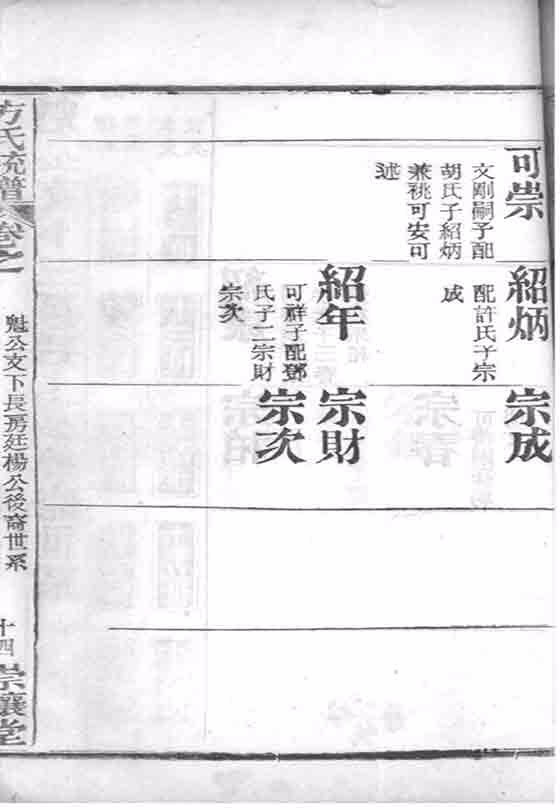 可崇
文剛嗣子配
胡氏子紹炳
兼祧可安可
述
紹炳
配許氏子宗
成
紹年
可群子配鄧
氏子二宗財
宗次
宗成
宗財
宗次
方氏統譜
卷之一
魁公支下長房廷楊公後裔世系
十四
崇讓堂